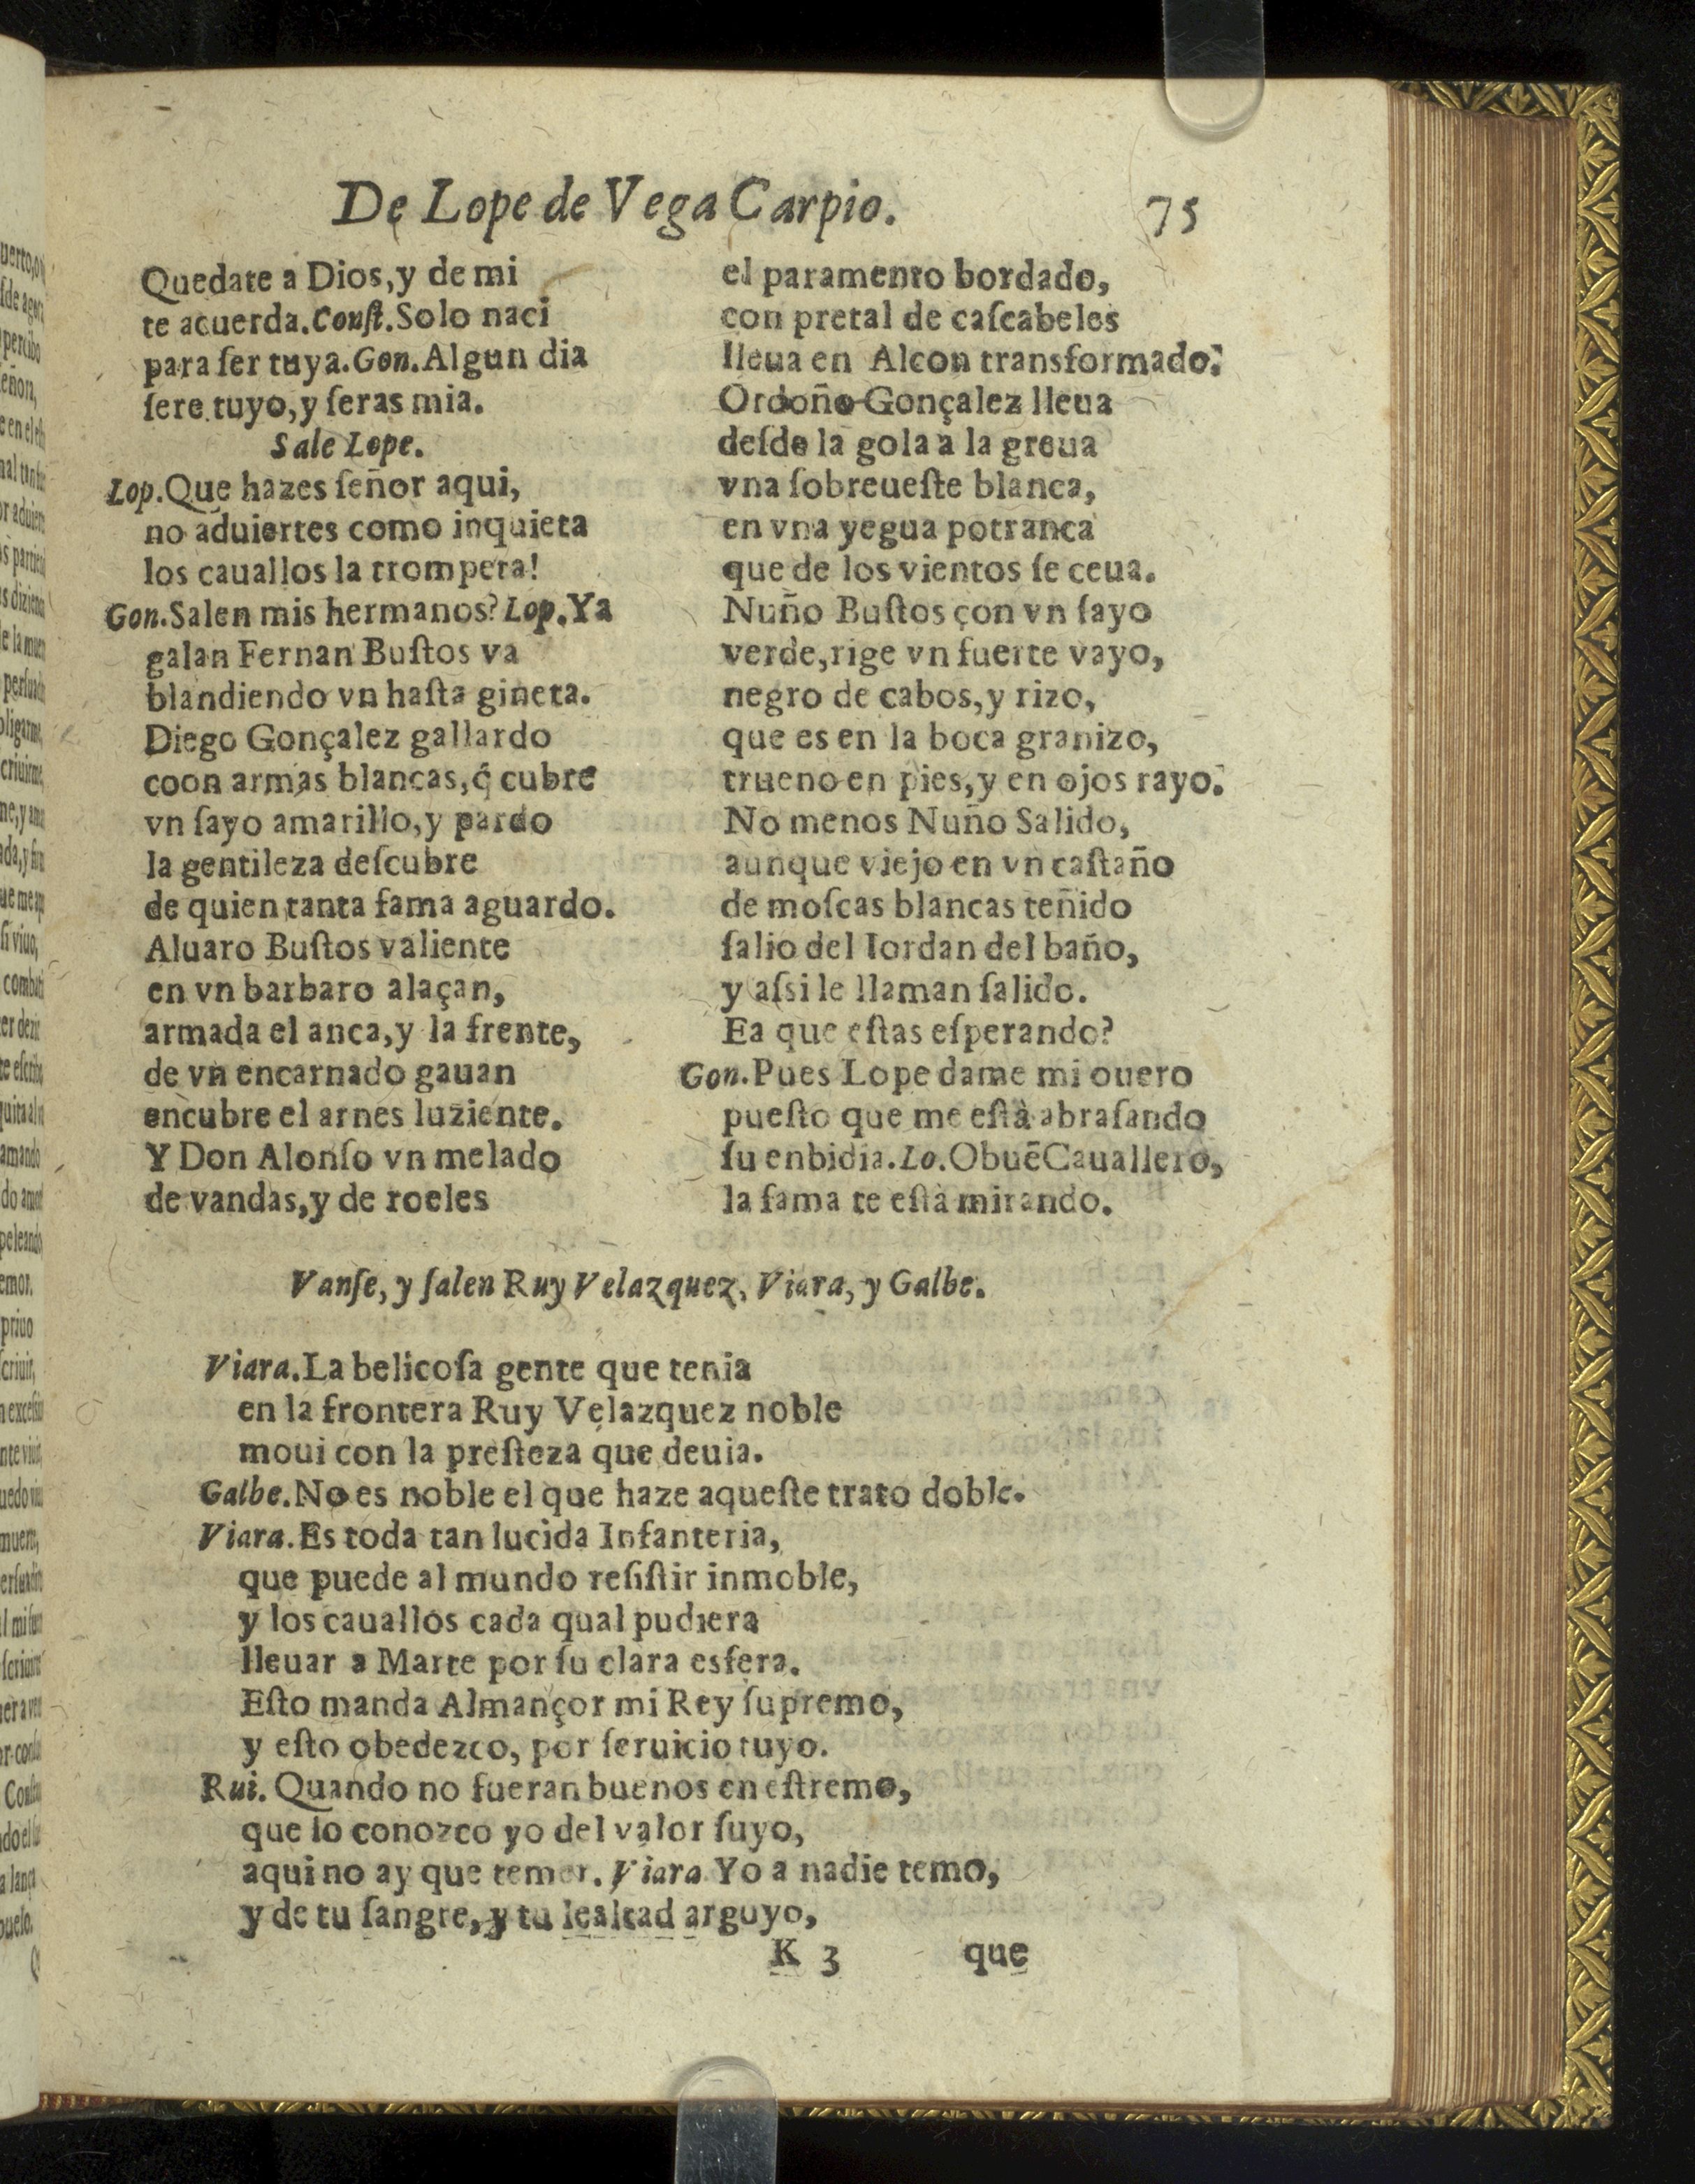 De Lope de Vega Carpio. 75
Quedate a Dios, y de mi
te acuerda. Conſt. Solo naci
para ſer tuya. Gon. Algun dia
ſere tuyo, y ſeras mia.
Sale Lope.
Lop. Que hazes ſeñor aqui,
no aduiertes como inquieta
los cauallos la trompeta!
Gon. Salen mis hermanos? Lop. Ya
galan Fernan Buſtos va
blandiendo vn haſta gineta.
Diego Gonçalez gallardo
coon armas blancas, q̃ cubre
vn ſayo amarillo, y pardo
la gentileza deſcubre
de quien tanta fama aguardo.
Aluaro Buſtos valiente
en vn barbaro alaçan,
armada el anca, y la frente,
de vn encarnado gauan
encubre el arnes luziente.
Y Don Alonſo vn melado
de vandas, y de roeles
el paramento bordado,
con pretal de caſcabeles
lleua en Alcon transformado.
Ordoño Gonçalez lleua
deſde la gola a la greua
vna ſobreueſte blanca,
en vna yegua potranca
que de los vientos ſe ceua.
Nuño Buſtos con vn ſayo
verde, rige vn fuerte vayo,
negro de cabos, y rizo,
que es en la boca granizo,
trueno en pies, y en ojos rayo.
No menos Nuño Salido,
aunque viejo en vn caſtaño
de moſcas blancas teñido
ſalio del Iordan del baño,
y aſsi le llaman ſalido.
Ea que eſtas eſperando?
Gon. Pues Lope dame mi ouero
pueſto que me eſtà abraſando
ſu enbidia. Lo. O buẽ Cauallero,
la fama te eſtà mirando.
Vanſe, y ſalen Ruy Velazquez, Viara, y Galbe.
Viara. La belicoſa gente que tenia
en la frontera Ruy Velazquez noble
moui con la preſteza que deuia.
Galbe. No es noble el que haze aqueſte trato doble.
Viara. Es toda tan lucida Infanteria,
que puede al mundo reſiſtir inmoble,
y los cauallos cada qual pudiera
lleuar a Marte por ſu clara esfera.
Eſto manda Almançor mi Rey ſupremo,
y eſto obedezco, por ſeruicio tuyo.
Rui. Quando no fueran buenos en eſtremo,
que lo conozco yo del valor ſuyo,
aqui no ay que temer. Viara Yo a nadie temo,
y de tu ſangre, y tu lealtad arguyo,
K 3 que